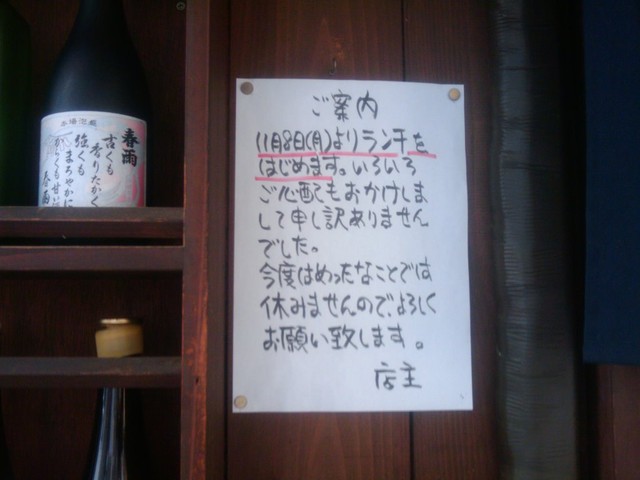 ご案内
11月8日(月)よりランチを
はじめます。いろいろ
ご心配もおかけしま
して申し訳ありません
でした。
今度はめったなことでは
休みませんので、よろしく
お願い致します。
店主
春雨
古くも
香りたかく
強くも
まろやかに
からくも甘い
春雨